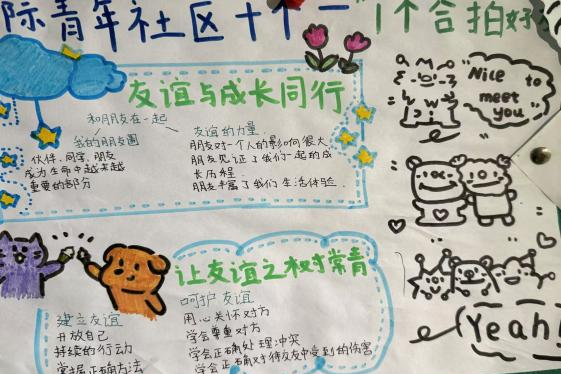 际青年社区十个一"个合拍好
友谊与成长同行
和朋友在一起
我的朋友圈
伙伴、同学、朋友
成为生命中越来越
重要的部分
友谊的力量
朋友对一个人的影响很大
朋友见证了我们一起的成
长历程
朋友丰富了我们生活体验.
Nice
to
meet
you
让友谊之树常青
建立友谊
开放自己
持续的行动
掌握正确方法
呵护友谊
用心关怀对方
学会尊重对方
学会正确处理冲突
学会正确对待友谊中受到的伤害
Yeah!